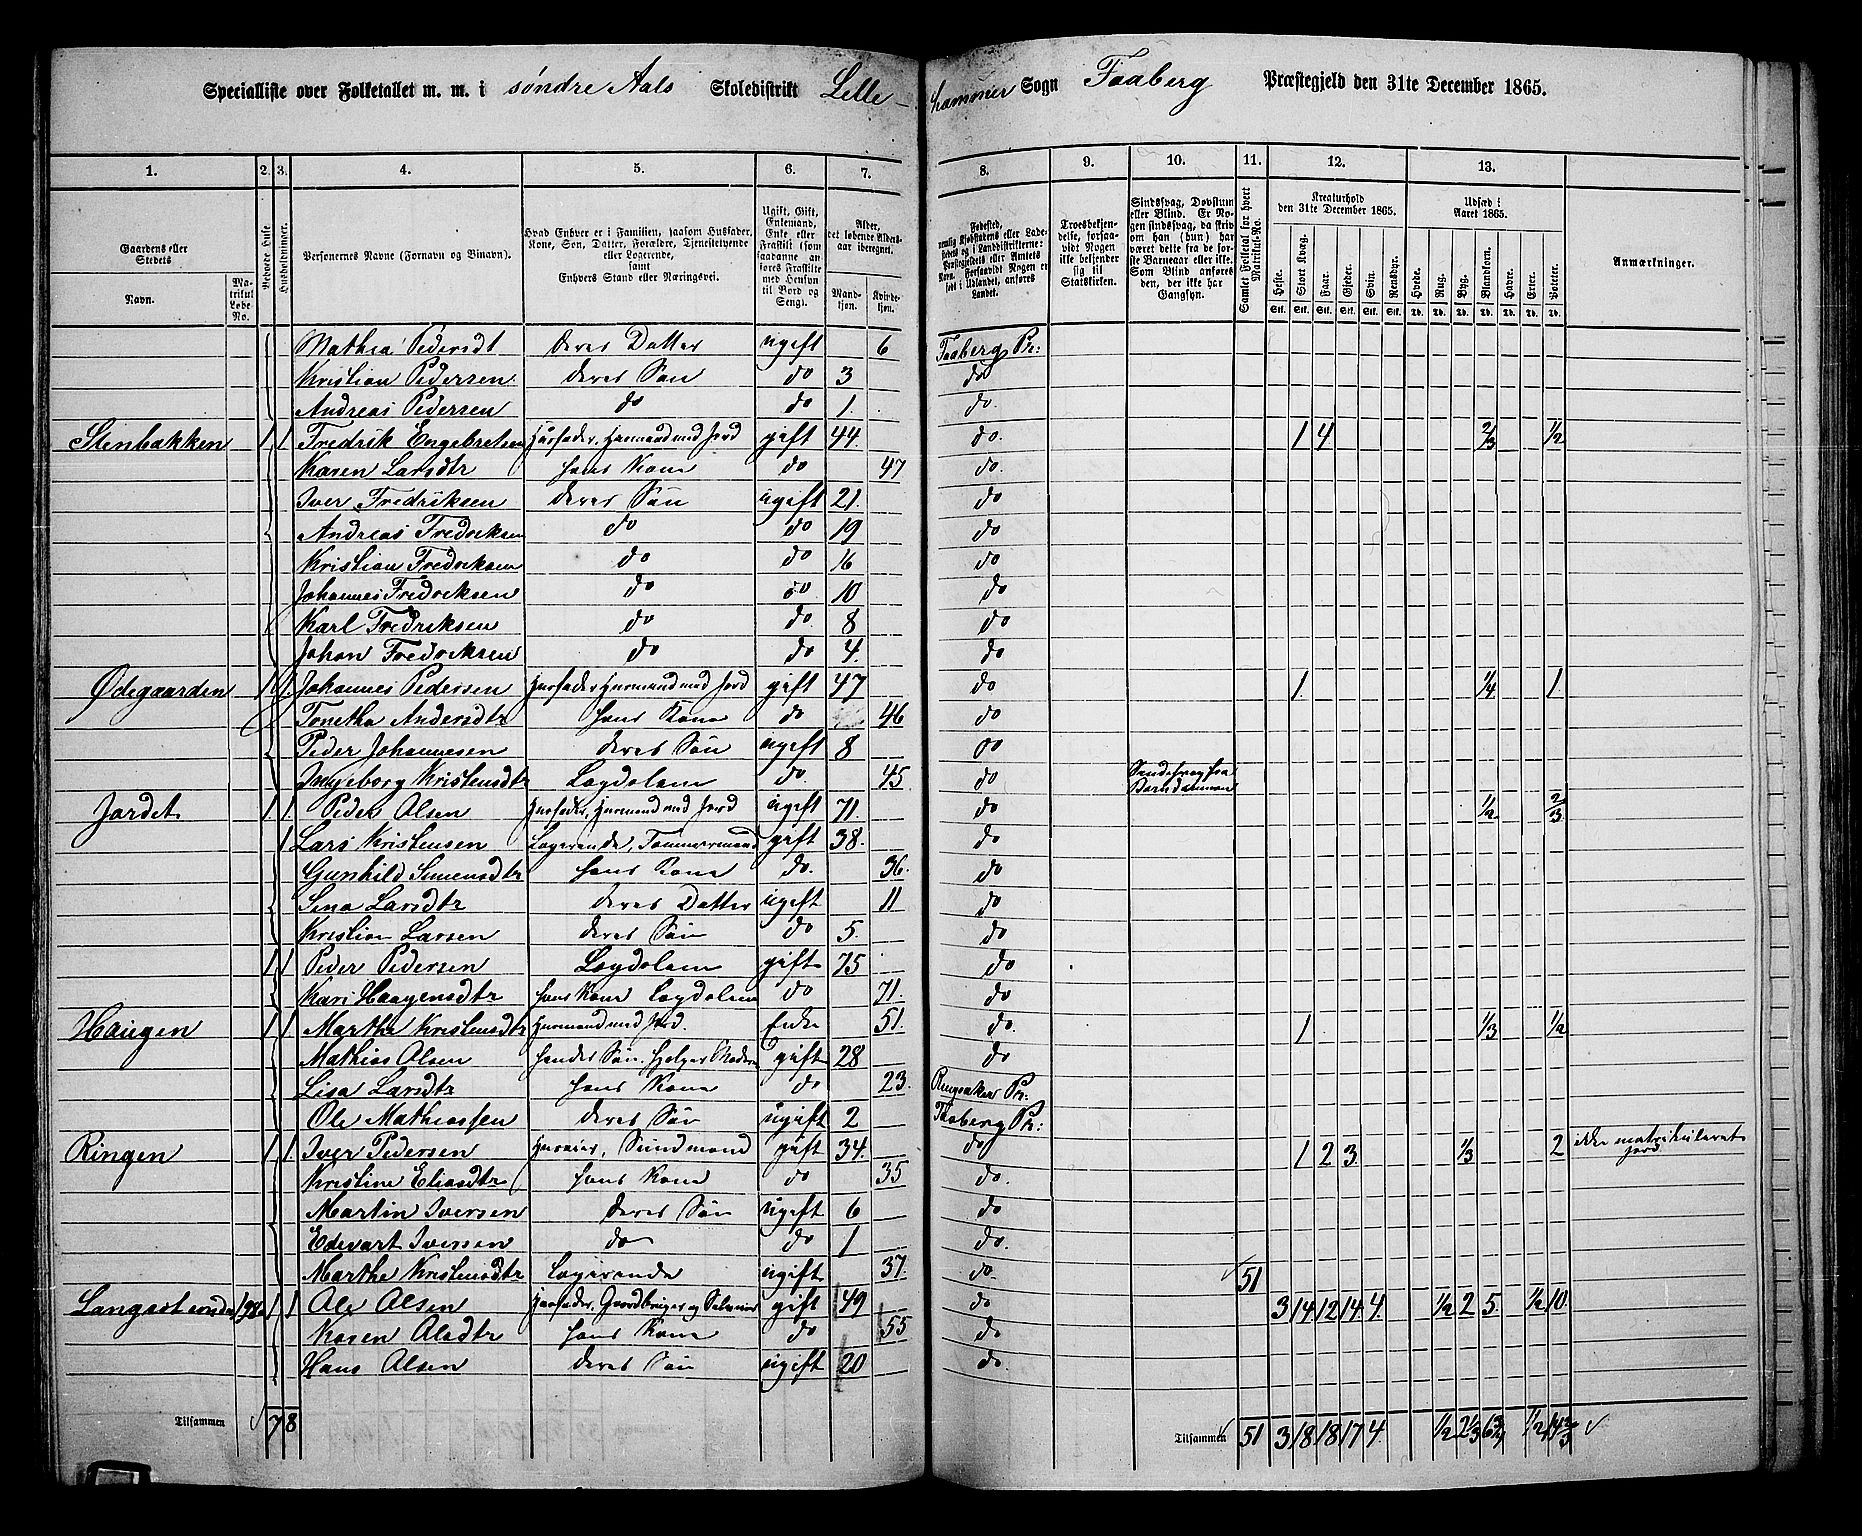 Specialliste over Folketallet m. m. i søndre Aals Skoledistrikt Lille-
hammer Sogn Faaberg Præstegjeld den 31te December 1865.
1. 2. 3. 4. 5. 6. 7. 8. 9. 10. 11. 12. 13.
Gaardens eller Stedets Navn. Matrikul Løbe No. Beboede Huse Husholdninger. Personernes Navne (Fornavn og Binavn). Hvad Enhver er i Familien, saasom Husfader, Kone, Søn, Datter, Forældre, Tjenestetyende eller Logerende, samt Enhvers Stand eller Næringsvei. Ugift, Gift, Enkemand, Enke eller Fraskilt (som saadanne anføres Fraskilte med Hensyn til Bord og Seng). Alder, det løbende Aldersaar iberegnet. Mandkjøn. Kvindekjøn.
Fødested, nemlig Kjøbstadens eller Ladestedets og i Landdistrikterne: Præstegjeldets eller Amtets Navn. Forsaavidt Nogen er født i Udlandet, anføres Landet. Troesbekjendelse, forsaavidt Nogen ikke bekjender sig til Statskirken. Sindssvag, Døvstum eller Blind. Er Nogen sindssvag, da skriv om han (hun) har været dette fra de første Barneaar eller ikke. Som Blind anføres den, der ikke har Gangsyn. Samlet Folketal for hvert Matrikul-No. Kreaturhold den 31te December 1865. Udsæd i Aaret 1865. Anmærkninger.
Heste. Stort Kvæg. Faar. Gjeder. Svin. Rensdyr. Hvede. Rug. Byg. Blandkorn. Havre. Erter. Poteter.
Stk. Stk. Stk. Stk. Stk. Stk. Td. Td. Td. Td. Td. Td. Td.
Mathea Pedersdt deres Datter ugift 6 Faaberg Pr:
Kristian Pedersen deres Søn do 3 do
Andreas Pedersen do do 1. do.
Stenbakken 1 1 Fredrik Engebretsen Husfader, Husmand med Jord gift 44. do. 1 4 2/3 1/2
Karen Larsdtr hans Kone do 47 do.
Iver Fredriksen deres Søn ugift 21. do
Andreas Fredriksen do do 19 do
Kristian Fredriksen do do 16 do
Johannes Fredriksen do do 10 do
Karl Fredriksen do do. 8 do
Johan Fredriksen do do 4. do
Ødegaarden 1 1 Johannes Pedersen Husfader Husmand med Jord gift 47 do 1. 1/4 1.
Tonetha Andersdtr hans Kone do 46 do
Peder Johannesen deres Søn ugift 8 do
Ingeborg Kristensdtr Lægdslem do. 45 do
Jordet 1 1 Peder Olsen Husfader, Husmand med Jord ugift 71. do 1/2 2/3
1 Lars Kristensen Logerende, Tømmermand gift 38. do
Gunhild Simensdtr hans Kone do. 36. do
Sina Larsdtr deres Datter ugift 11 do
Kristian Larsen deres Søn do 5. do
1 1 Peder Pedersen Lægdslem gift 75 do
Kari Haagensdtr hans Kone Lægdslem do 71. do
Haugen 1 1 Marthe Kristensdtr Husmand med Jord. Enke 51. do. 1 1/3 1/2
Mathias Olsen hendes Søn, hjelper Moderen gift 28 do
Lisa Larsdtr hans Kone do 23. Ringsaker Pr:
Ole Mathiassen deres Søn ugift 2 Faaberg Pr:
Ringen 1 1 Iver Pedersen Husmand gift 34. do 1 2 3 1/3 2 ikke matrikuleret jord
Kristine Eliasdtr hans Kone do 35 do.
Martin Iversen deres Søn ugift 6 do
Edevart Iversen do do 1 do.
Marthe Kristensdtr Logerende ugift 37. do. 51
198 1 1 Ole Olsen Husfader, Gaardbruger og Selveier gift 49 do 3 14 12 14 4. 1/2 2 5. 1/2 10
Karen Olsdtr hans Kone do 55 do
Hans Olsen deres Søn ugift 20 do.
Tilsammen 7 8 Tilsammen 51 3 18 18 17 4. 1/2 2 1/3 6 3/4 1/2 14 2/3